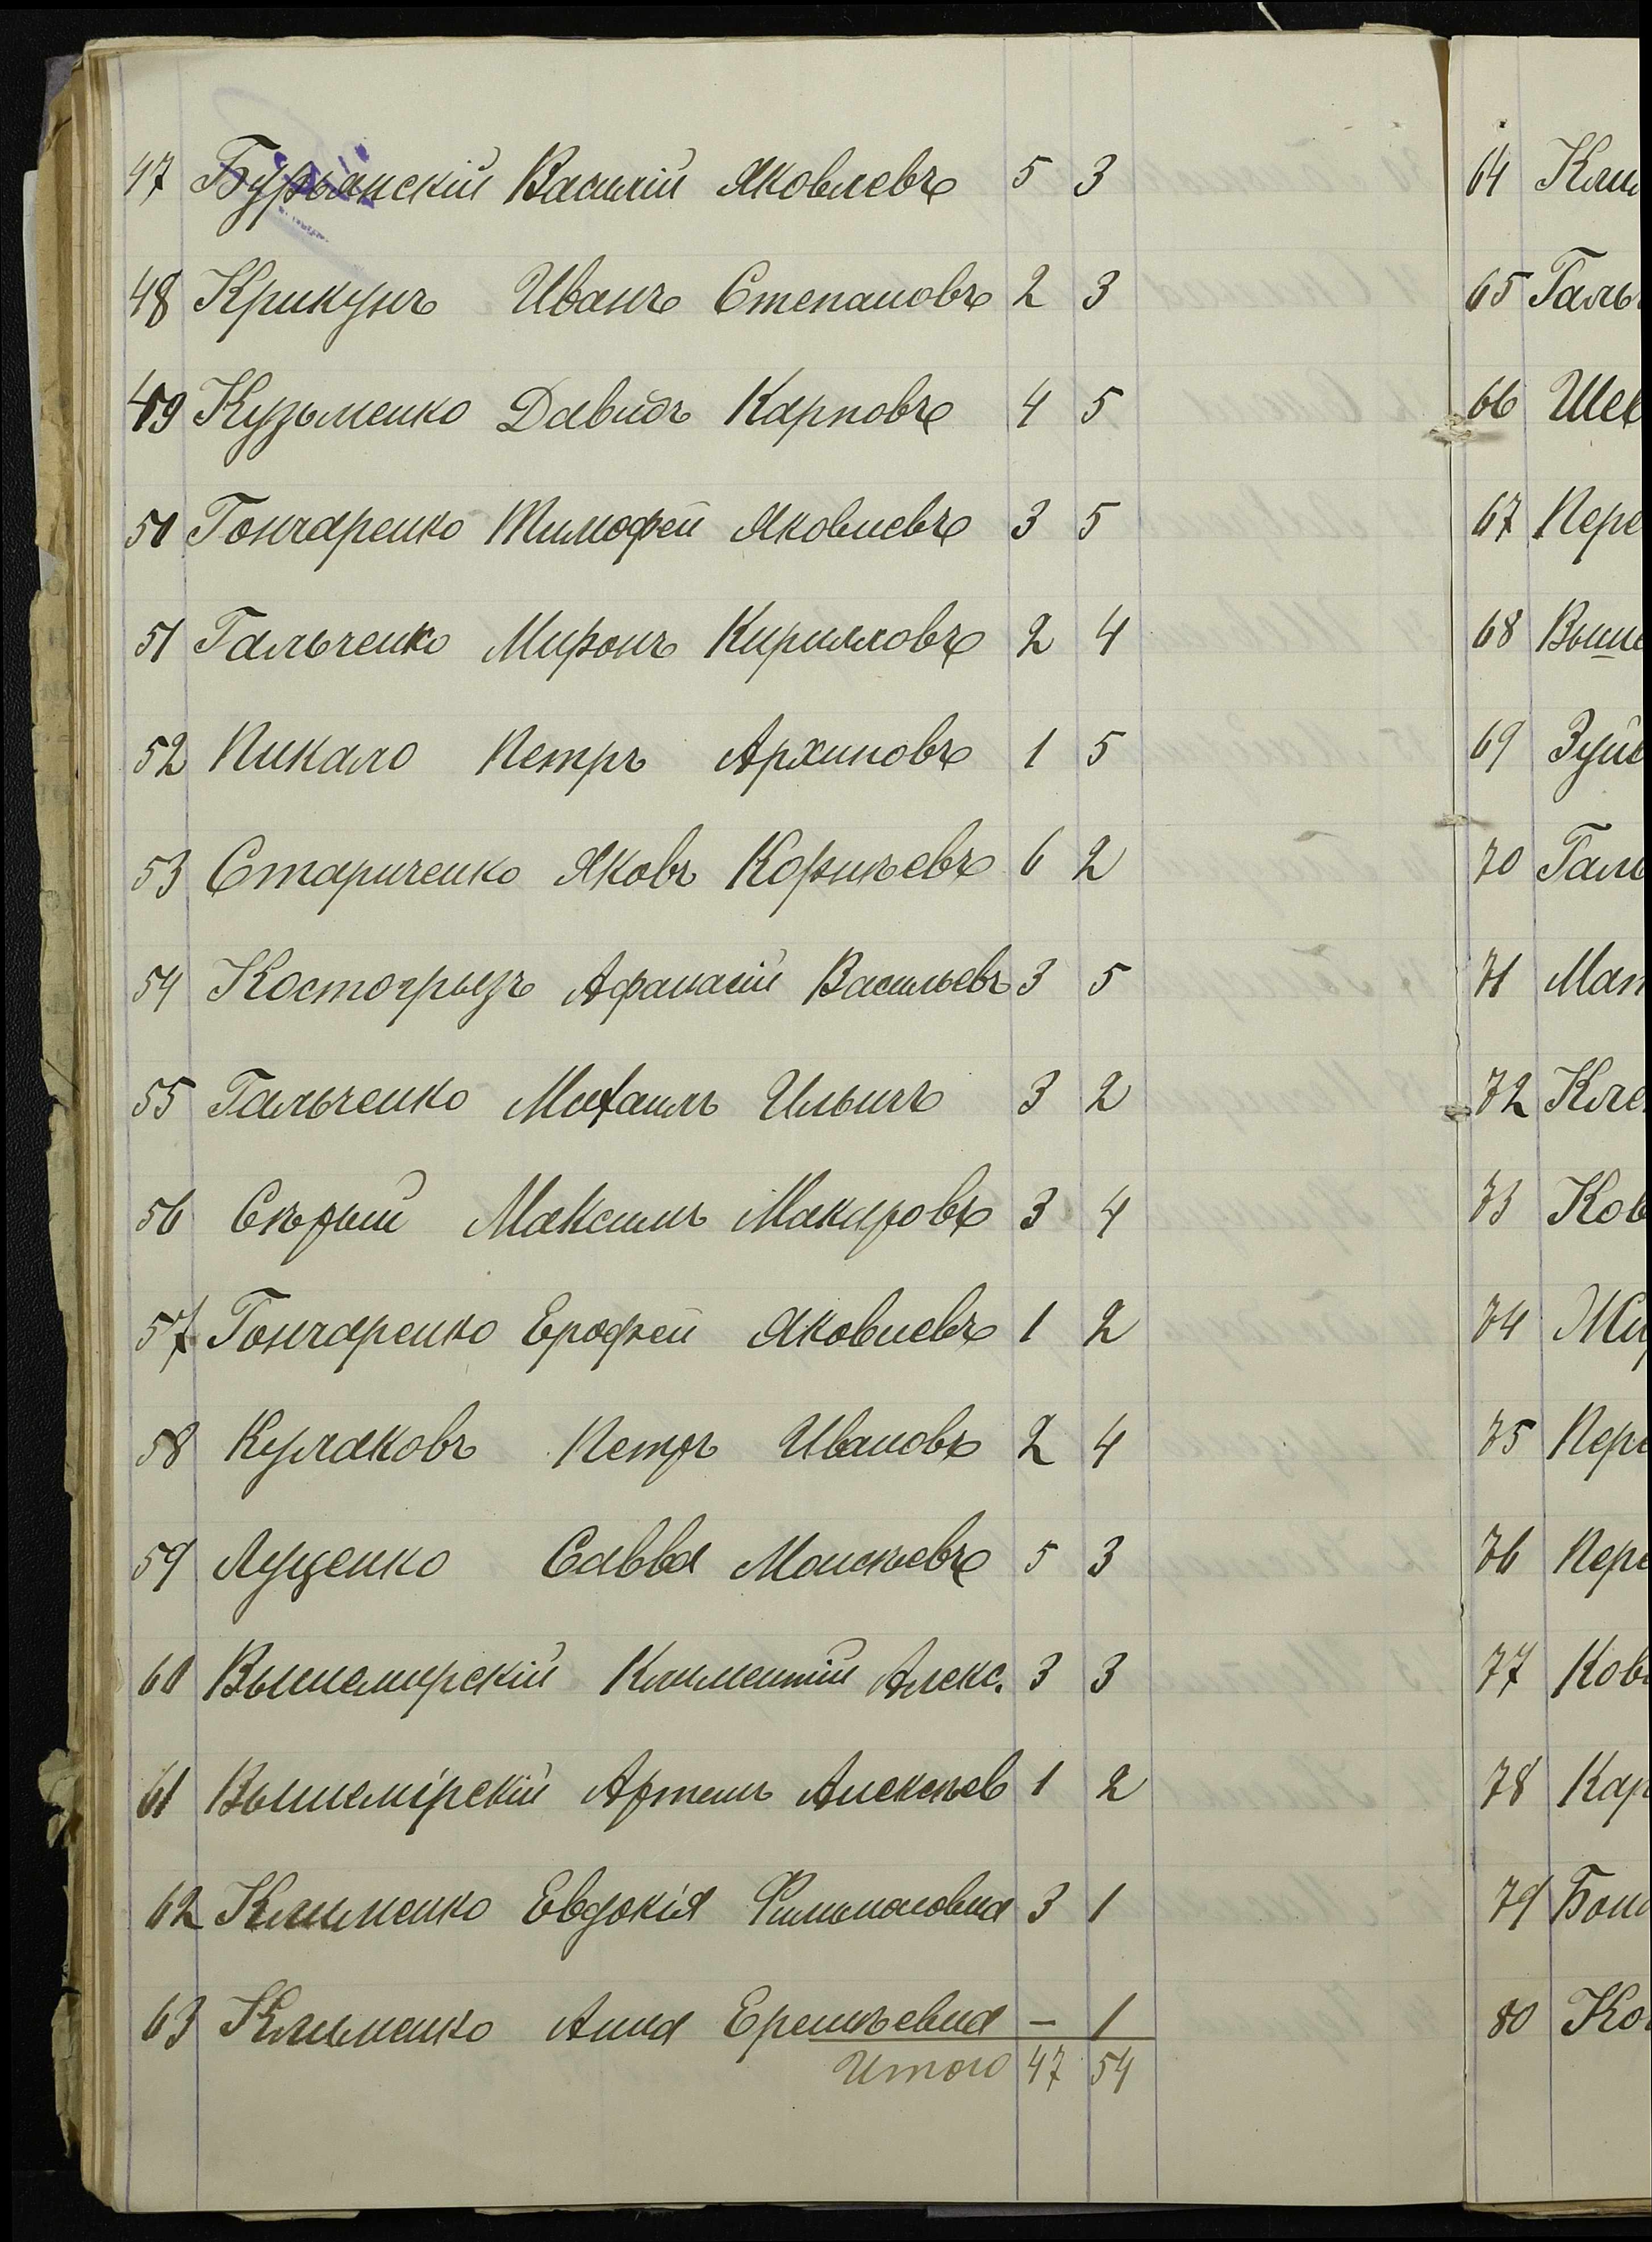 47 Бурьянскій Василій Яковлевъ 5 3
48 Крикунъ Иванъ Степановъ 2 3
49 Кузьменко Давидъ Карповъ 4 5
50 Гончаренко Тимофей Яковлевъ 3 5
51 Гальченко Миронъ Кирилловъ 2 4
52 Пикало Петръ Архиповъ 1 5
53 Стариченко Яковъ Корнѣевъ 6 2
54 Костогрызъ Афанасій Васильевъ 3 5
55 Гальченко Михаилъ Ильичъ 3 2
56 Сѣрый Максимъ Макаровъ 3 4
57 Гончаренко Ерофей Яковлевъ 1 2
58 Кулаковъ Петръ Ивановъ 2 4
59 Луценко Савва Моисѣевъ 5 3
60 Вышемирскій Климентій Алекс. 3 3
61 Вышемірскій Артемъ Алексѣев 1 2
62 Клименко Евдокія 3 1
63 Клименко Анна Еремѣевна — 1
Итого 47 54
64 Клим
65 Галь
66 Шев
67 Пере
68 Выше
69 Зуй
70 Галь
71 Мат
72 Кле
73 Ков
74 Мир
75 Пере
76 Пере
77 Ков
78 Кар
79 Бон
80 Ко